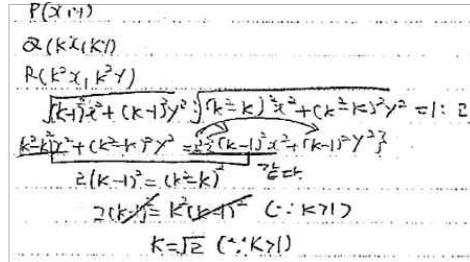 P(x, y)
Q(kx, ky)
R(k²x, k²y)
√(k-1)²x²+(k-1)²y² : √(k²-k)²x²+(k²-k)²y² = 1 : 2
(k²-k)²x²+(k²-k)²y² = {(k-1)²x²+(k-1)²y²}
2(k-1)² = (k²-k)²
2(k-1)² = k²(k-1)² (∵ k>1)
k=√2 (∵ k>1)